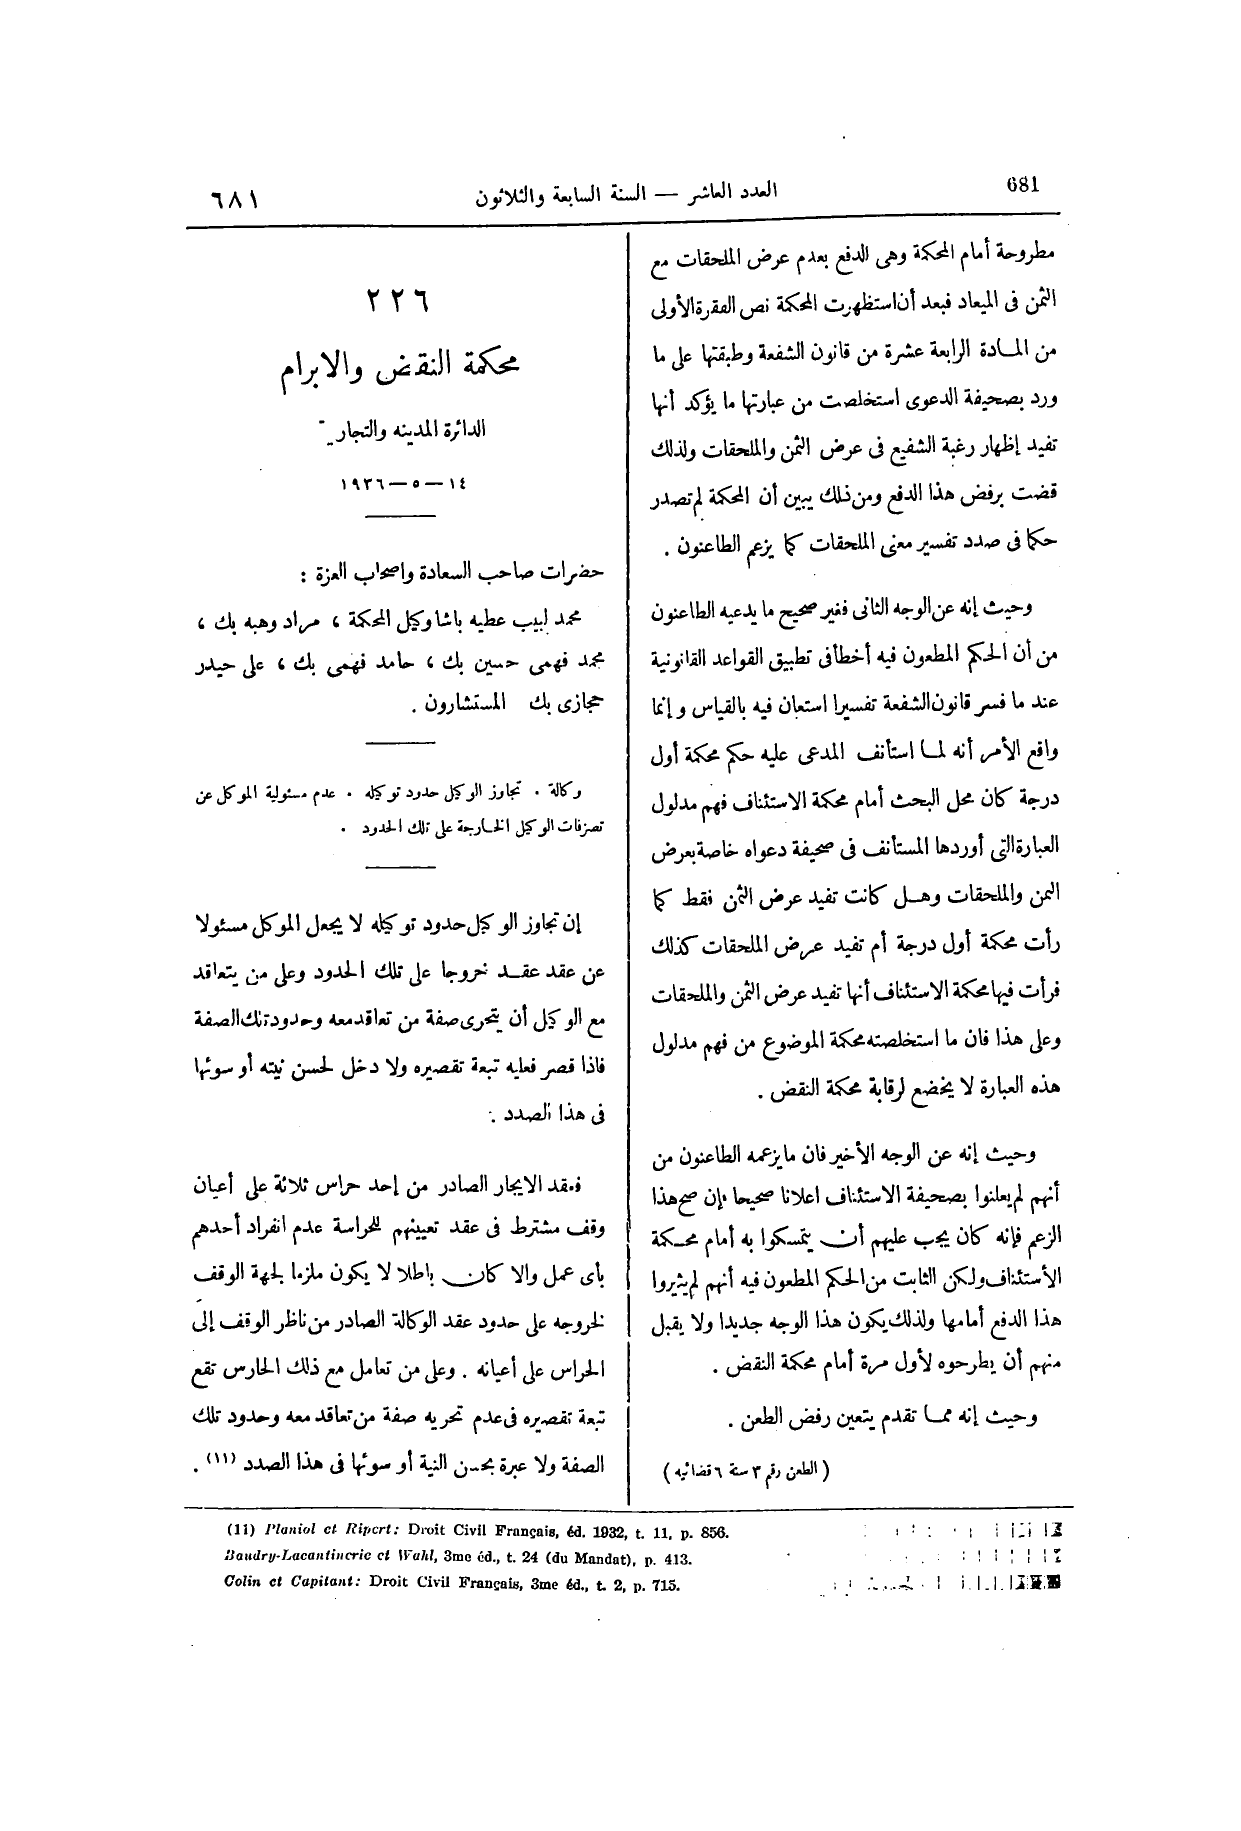 681
العدد العاشر — السنة السابعة والثلاثون
٦٨١
مطروحة أمام المحكمة وهى الدفع بعدم عرض الملحقات مع
الثمن فى الميعاد فبعد أن استظهرت المحكمة نص الفقرة الأولى
من المادة الرابعة عشرة من قانون الشفعة وطبقتها على ما
ورد بصحيفة الدعوى استخلصت من عبارتها ما يؤكد أنها
تفيد إظهار رغبة الشفيع فى عرض الثمن والملحقات ولذلك
قضت برفض هذا الدفع ومن ذلك يبين أن المحكمة لم تصدر
حكما فى صدد تفسير معنى الملحقات كما يزعم الطاعنون .
وحيث إنه عن الوجه الثانى فغير صحيح ما يدعيه الطاعنون
من أن الحكم المطعون فيه أخطأ فى تطبيق القواعد القانونية
عند ما فسر قانون الشفعة تفسيرا استعان فيه بالقياس وإنما
واقع الأمر أنه لما استأنف المدعى عليه حكم محكمة أول
درجة كان محل البحث أمام محكمة الاستئناف فهم مدلول
العبارة التى أوردها المستأنف فى صحيفة دعواه خاصة بعرض
الثمن والملحقات وهل كانت تفيد عرض الثمن فقط كما
رأت محكمة أول درجة أم تفيد عرض الملحقات كذلك
فرأت فيها محكمة الاستئناف أنها تفيد عرض الثمن والملحقات
وعلى هذا فان ما استخلصته محكمة الموضوع من فهم مدلول
هذه العبارة لا يخضع لرقابة محكمة النقض .
وحيث إنه عن الوجه الأخير فان ما يزعمه الطاعنون من
أنهم لم يعلنوا بصحيفة الاستئناف اعلانا صحيحا فإن صح هذا
الزعم فإنه كان يجب عليهم أن يتمسكوا به أمام محكمة
الأستئناف ولكن الثابت من الحكم المطعون فيه أنهم لم يثيروا
هذا الدفع أمامها ولذلك يكون هذا الوجه جديدا ولا يقبل
منهم أن يطرحوه لأول مرة أمام محكمة النقض .
وحيث إنه مما تقدم يتعين رفض الطعن .
( الطعن رقم ٣ سنة ٦ قضائيه )
٢٢٦
محكمة النقض والابرام
الدائرة المدنيه والتجارية
١٤ — ٥ — ١٩٣٦
حضرات صاحب السعادة واصحاب العزة :
محمد لبيب عطيه باشا وكيل المحكمة ، مراد وهبه بك ،
محمد فهمى حسين بك ، حامد فهمى بك ، على حيدر
حجازى بك المستشارون .
وكالة . تجاوز الوكيل حدود توكيله . عدم مسئولية الموكل عن
تصرفات الوكيل الخارجة على تلك الحدود .
إن تجاوز الوكيل حدود توكيله لا يجعل الموكل مسئولا
عن عقد عقد خروجا على تلك الحدود وعلى من يتعاقد
مع الوكيل أن يتحرى صفة من تعاقد معه وحدود تلك الصفة
فاذا قصر فعليه تبعة تقصيره ولا دخل لحسن نيته أو سوئها
فى هذا الصدد .
فعقد الايجار الصادر من إحد حراس ثلاثة على أعيان
وقف مشترط فى عقد تعيينهم للحراسة عدم انفراد أحدهم
بأى عمل والا كان باطلا لا يكون ملزما لجهة الوقف
لخروجه على حدود عقد الوكالة الصادر من ناظر الوقف إلى
الحراس على أعيانه . وعلى من تعامل مع ذلك الحارس تقع
تبعة تقصيره فى عدم تحريه صفة من تعاقد معه وحدود تلك
الصفة ولا عبرة بحسن النية أو سوئها فى هذا الصدد (١١) .
(11) Planiol et Ripert: Droit Civil Français, éd. 1932, t. 11, p. 856.
Baudry-Lacantinerie et Wahl, 3me éd., t. 24 (du Mandat), p. 413.
Colin et Capitant: Droit Civil Français, 3me éd., t. 2, p. 715.